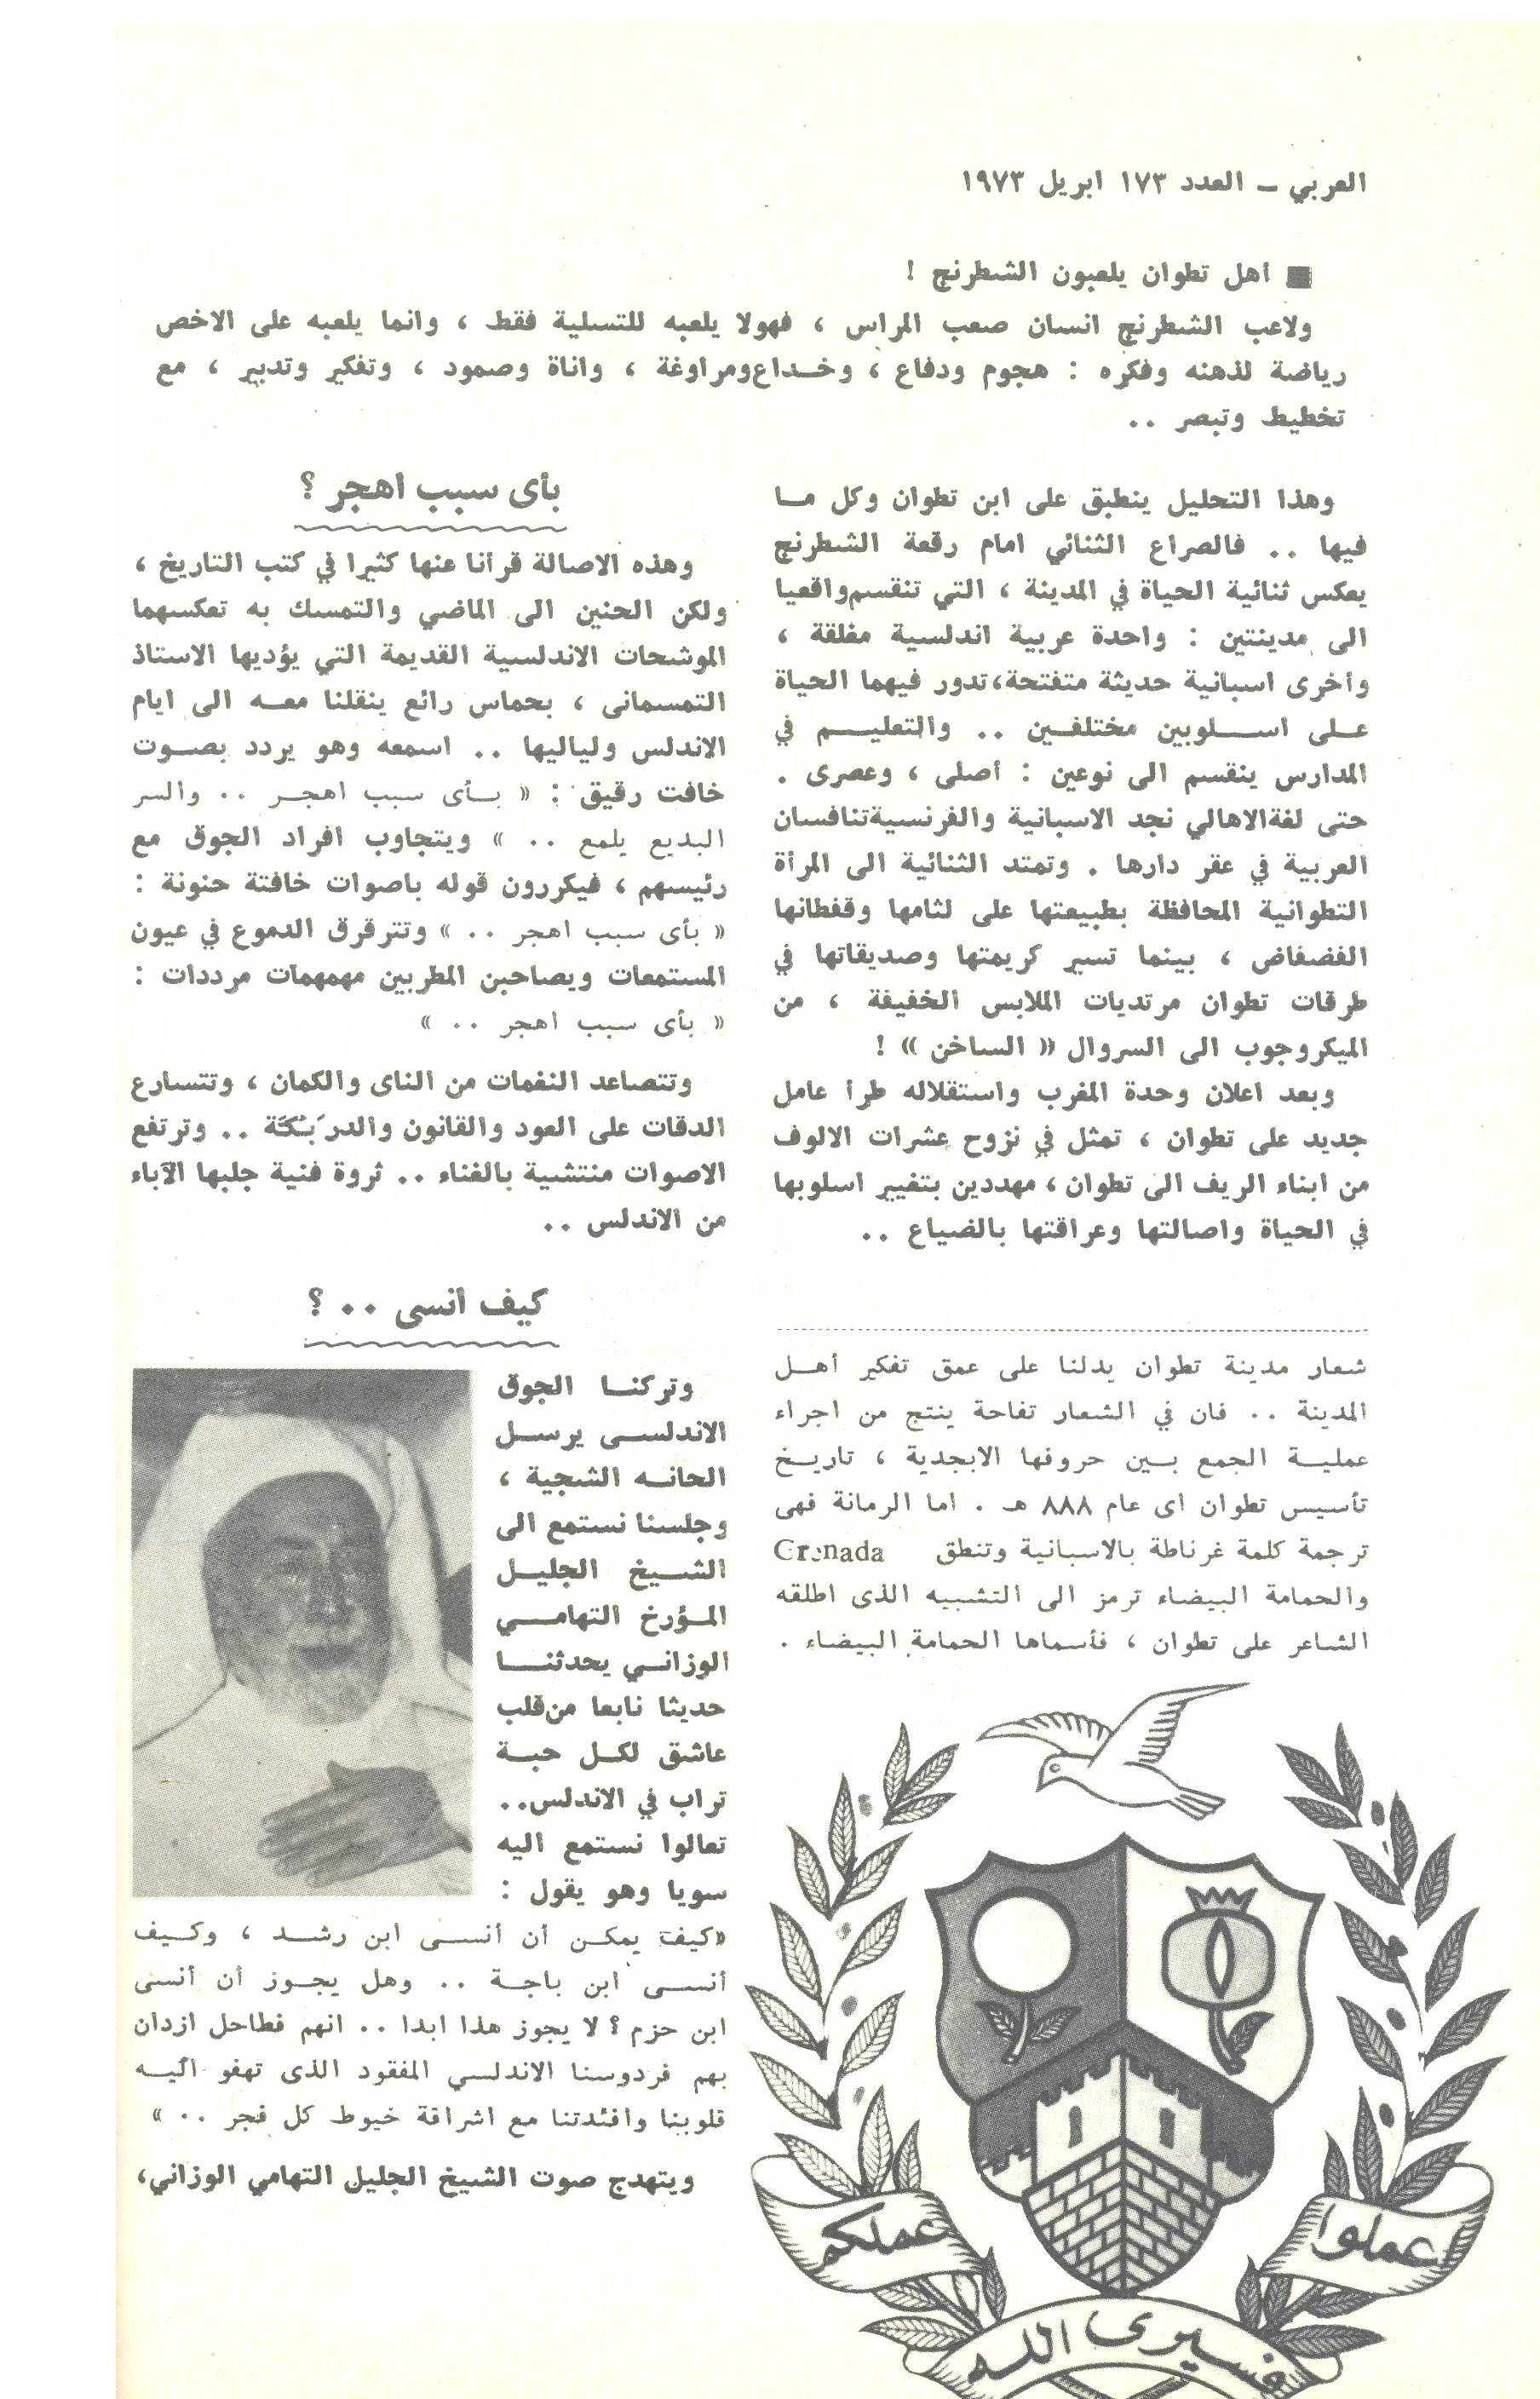 العربي – العدد ١٧٣ ابريل ١٩٧٣
■ أهل تطوان يلعبون الشطرنج !
ولاعب الشطرنج انسان صعب المراس ، فهولا يلعبه للتسلية فقط ، وانما يلعبه على الاخص
رياضة لذهنه وفكره : هجوم ودفاع ، وخداع ومراوغة ، واناة وصمود ، وتفكير وتدبير ، مع
تخطيط وتبصر ..
وهذا التحليل ينطبق على ابن تطوان وكل ما
فيها .. فالصراع الثنائي امام رقعة الشطرنج
يعكس ثنائية الحياة في المدينة ، التي تنقسم واقعيا
الى مدينتين : واحدة عربية اندلسية مغلقة ،
وأخرى اسبانية حديثة متفتحة، تدور فيهما الحياة
على اسلوبين مختلفين .. والتعليم في
المدارس ينقسم الى نوعين : أصلى ، وعصرى .
حتى لغة الاهالي نجد الاسبانية والفرنسية تنافسان
العربية في عقر دارها . وتمتد الثنائية الى المرأة
التطوانية المحافظة بطبيعتها على لثامها وقفطانها
الفضفاض ، بينما تسير كريمتها وصديقاتها في
طرقات تطوان مرتديات الملابس الخفيفة ، من
الميكروجوب الى السروال « الساخن » !
وبعد اعلان وحدة المغرب واستقلاله طرأ عامل
جديد على تطوان ، تمثل في نزوح عشرات الالوف
من ابناء الريف الى تطوان ، مهددين بتغيير اسلوبها
في الحياة واصالتها وعراقتها بالضياع ..
شعار مدينة تطوان يدلنا على عمق تفكير أهل
المدينة .. فان في الشعار تفاحة ينتج من اجراء
عملية الجمع بين حروفها الابجدية ، تاريخ
تأسيس تطوان أى عام ٨٨٨ هـ . اما الرمانة فهى
ترجمة كلمة غرناطة بالاسبانية وتنطق Grenada
والحمامة البيضاء ترمز الى التشبيه الذى اطلقه
الشاعر على تطوان ، فأسماها الحمامة البيضاء .
عملوا
فسيرى الله
عملكم
بأى سبب اهجر ؟
وهذه الاصالة قرأنا عنها كثيرا في كتب التاريخ ،
ولكن الحنين الى الماضي والتمسك به تعكسهما
الموشحات الاندلسية القديمة التي يؤديها الاستاذ
التمسمانى ، بحماس رائع ينقلنا معه الى ايام
الاندلس ولياليها .. اسمعه وهو يردد بصوت
خافت رقيق : « بأى سبب اهجر .. والسر
البديع يلمع .. » ويتجاوب افراد الجوق مع
رئيسهم ، فيكررون قوله باصوات خافتة حنونة :
« بأى سبب اهجر .. » وتترقرق الدموع في عيون
المستمعات ويصاحبن المطربين مهمهمات مرددات :
« بأى سبب اهجر .. »
وتتصاعد النغمات من الناى والكمان ، وتتسارع
الدقات على العود والقانون والدرَبُكَّة .. وترتفع
الاصوات منتشية بالغناء .. ثروة فنية جلبها الآباء
من الاندلس ..
كيف أنسى .. ؟
وتركنا الجوق
الاندلسى يرسل
الحانه الشجية ،
وجلسنا نستمع الى
الشيخ الجليل
المؤرخ التهامى
الوزانى يحدثنا
حديثا نابعا من قلب
عاشق لكل حبة
تراب في الاندلس..
تعالوا نستمع اليه
سويا وهو يقول :
«كيف يمكن أن أنسى ابن رشد ، وكيف
أنسى ابن باجة .. وهل يجوز أن أنسى
ابن حزم ؟ لا يجوز هذا ابدا .. انهم فطاحل ازدان
بهم فردوسنا الاندلسي المفقود الذى تهفو اليه
قلوبنا وافئدتنا مع اشراقة خيوط كل فجر .. »
ويتهدج صوت الشيخ الجليل التهامي الوزاني،